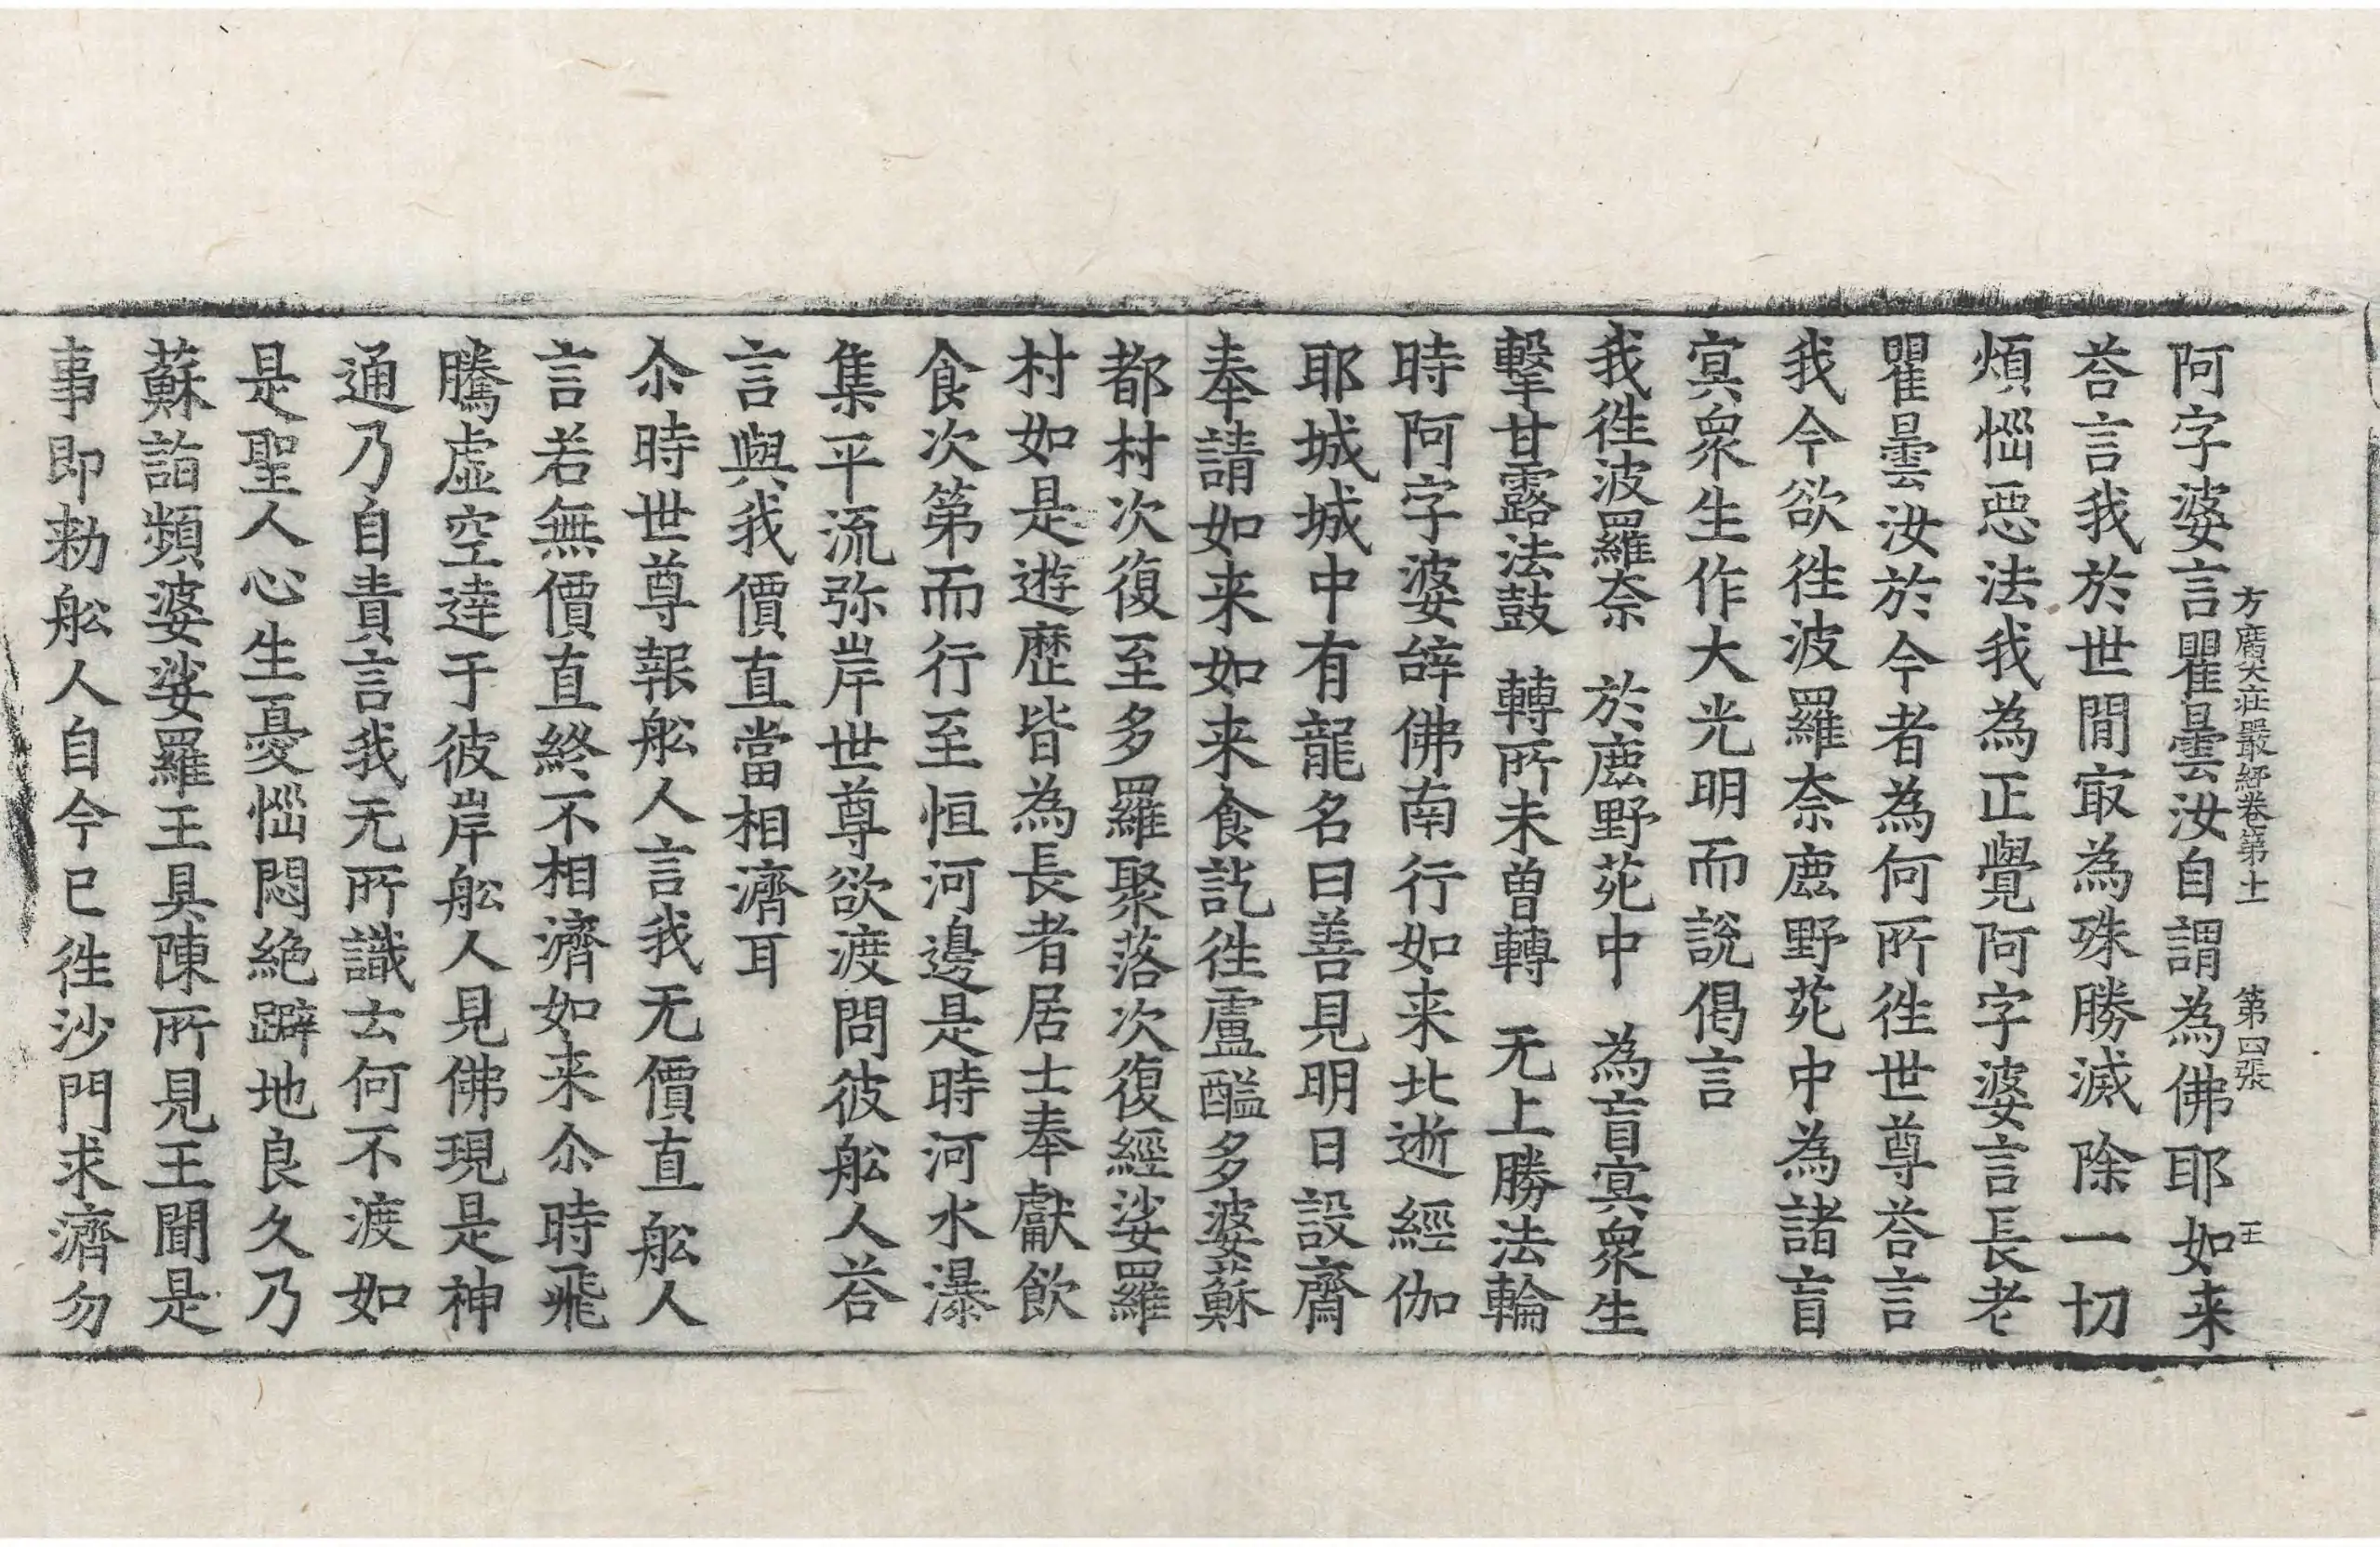 方廣大莊嚴經卷第十一　第四張　王
阿字婆言瞿曇汝自謂為佛耶如来
荅言我於世間㝡為殊勝滅除一切
煩惱惡法我為正覺阿字婆言長老
瞿曇汝於今者為何所徃世尊荅言
我今欲徃波羅奈鹿野苑中為諸盲
冥衆生作大光明而說偈言
我徃波羅奈　於鹿野苑中　為盲冥衆生
擊甘露法鼓　轉所未曾轉　无上勝法輪
時阿字婆辝佛南行如来北逝經伽
耶城城中有龍名曰善見明日設齋
奉請如来如来食訖徃盧醯多婆蘇
都村次復至多羅聚落次復經娑羅
村如是遊歷皆為長者居士奉獻飲
食次第而行至恒河邊是時河水瀑
集平流弥岸世尊欲渡問彼舩人荅
言與我價直當相濟耳
尒時世尊報舩人言我无價直舩人
言若無價直終不相濟如来尒時飛
騰虛空達于彼岸舩人見佛現是神
通乃自責言我无所識云何不渡如
是聖人心生憂惱悶絶躃地良久乃
蘇詣頻婆娑羅王具陳所見王聞是
事即勑舩人自今已徃沙門求濟勿